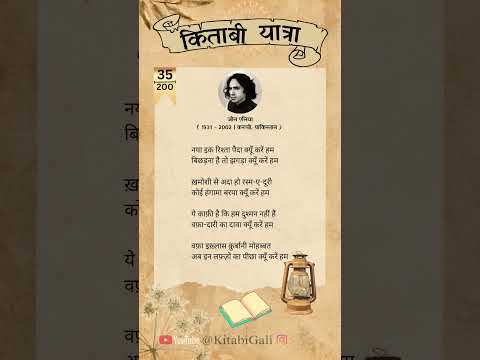 किताबी यात्रा
35
200
जौन एलिया
( 1931 - 2002 | कराची, पाकिस्तान )
नया इक रिश्ता पैदा क्यूँ करें हम
बिछड़ना है तो झगड़ा क्यूँ करें हम
ख़मोशी से अदा हो रस्म-ए-दूरी
कोई हंगामा बरपा क्यूँ करें हम
ये काफ़ी है कि हम दुश्मन नहीं हैं
वफ़ा-दारी का दावा क्यूँ करें हम
वफ़ा इख़्लास क़ुर्बानी मोहब्बत
अब इन लफ़्ज़ों का पीछा क्यूँ करें हम
YouTube @KitabiGali